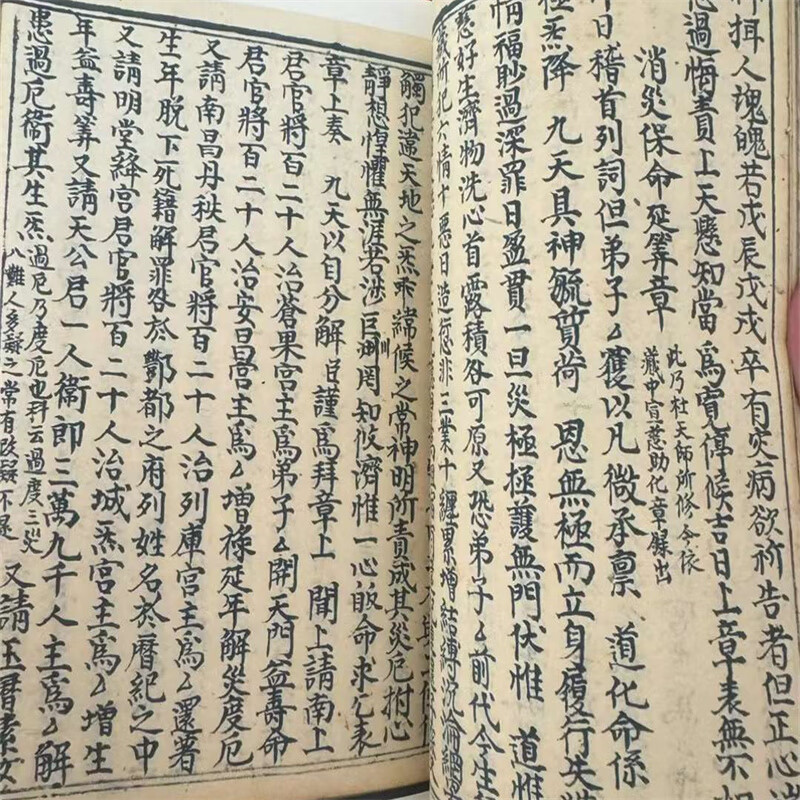 神拜人塊魄若戊辰戊戌卒有灾病欲祈告者但正心
愚過悔責上天懸知當為寬停候吉日上章表無不如
消災保命延筭章
此乃杜天師所修今依
藏中宣慈助化章録出
日稽首列詞但弟子厶獲以凡微承禀 道化命係
炁降 九天具神毓質荷 恩無極而立身履行失
情福眇過深罪日盈貫一旦災極極護無門伏惟 道惟
慈好生濟物洗心首露積咎可原又恐弟子厶前代今生
所犯六情十惡日造愆非三業十纏累增結縛沉淪
觸犯違天地之炁乖緯候之常神明所責成其災厄拊心
靜想惶懼無涯若涉巨川罔知攸濟惟一心皈命求乞表
章上奏 九天以自分解臣謹為拜章上 聞上請南上
君官將百二十人治蒼果宮主為弟子厶開天門益壽命
君官將百二十人治安昌宮主為厶増祿延年解災度厄
又請南昌丹秩君官將百二十人治列庫宮主為厶還著
生年脫下死籍解罪咎於酆都之府列姓名於曆紀之中
又請明堂絳宮君官將百二十人治城炁宮主為厶增生
年益壽筭又請天公君一人衛郎三萬九千人主為厶解
患過厄衛其生炁
過厄乃度厄也科云過度三災
八難人多疑之常有改
又請玉曆素女